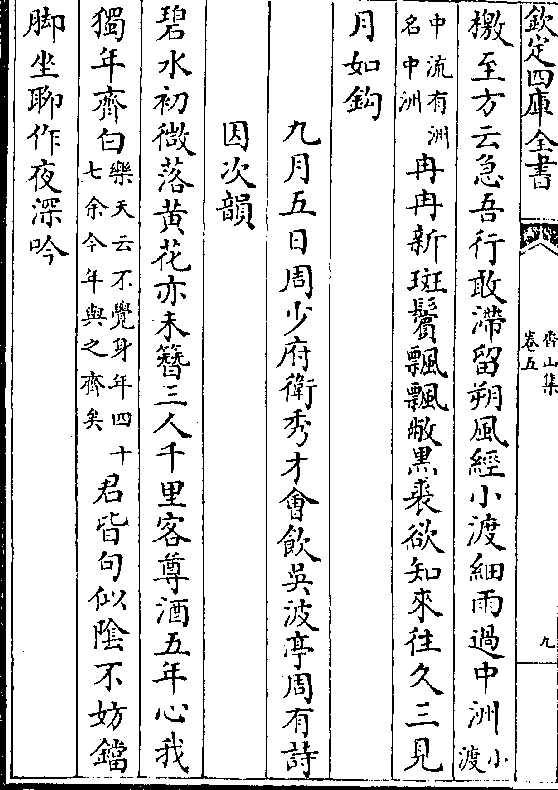 欽定四庫全書
香山集
卷五
九
檄至方云急吾行敢滯留朔風經小渡細雨過中洲小渡
中流有洲名中洲冉冉新斑鬢飄飄敝黑裘欲知來往久三見
月如鈎
九月五日周少府衛秀才會飲吳波亭周有詩
因次韻
碧水初微落黄花亦未簪三人千里客尊酒五年心我
獨年齊白樂天云不覺身年四十七余今年與之齊矣君皆句似陰不妨鐺
脚坐聊作夜深吟